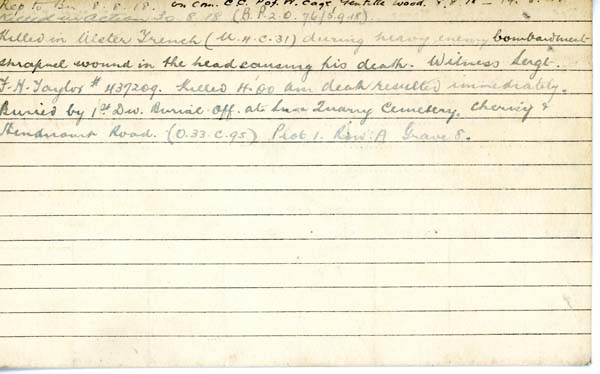 Rep to Bn. 8.8.18. on Com. C.C. P of W. Cage Gentelle Wood. 8.8.18 - 
Killed in action 30.8.18 (B.P.2.O. 76/5.9.18)
Killed in Ulster Trench (U.4.C.31) during heavy enemy bombardment
shrapnel wound in the head causing his death. Witness Sergt.
F.H. Taylor # 437209. Killed 4.00 am death resulted immediately.
Buried by 1st Div. Burial Off. at Sun Quarry Cemetery, Cherisy &
Hendecourt Road. (O.33.C.95) Plot 1. Row. A Grave 8.